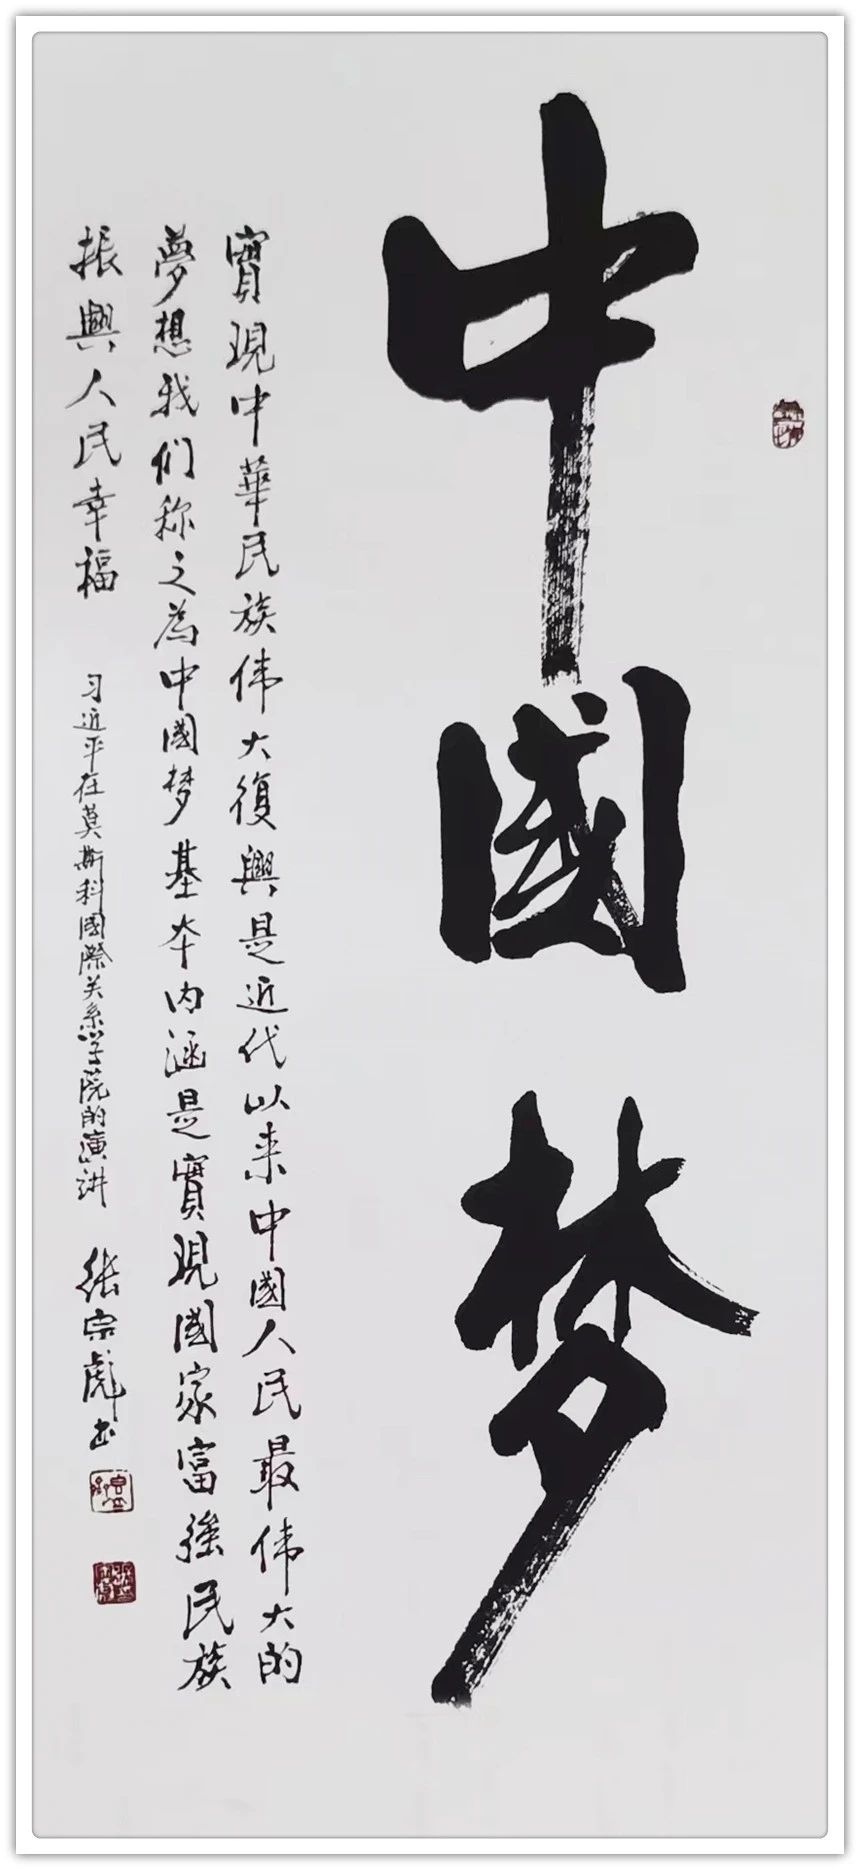 中國梦
實現中華民族偉大復興是近代以来中國人民最偉大的
夢想我们称之為中國梦基本内涵是實現國家富強民族
振興人民幸福
习近平在莫斯科國際关系学院的演讲
张宗彪书